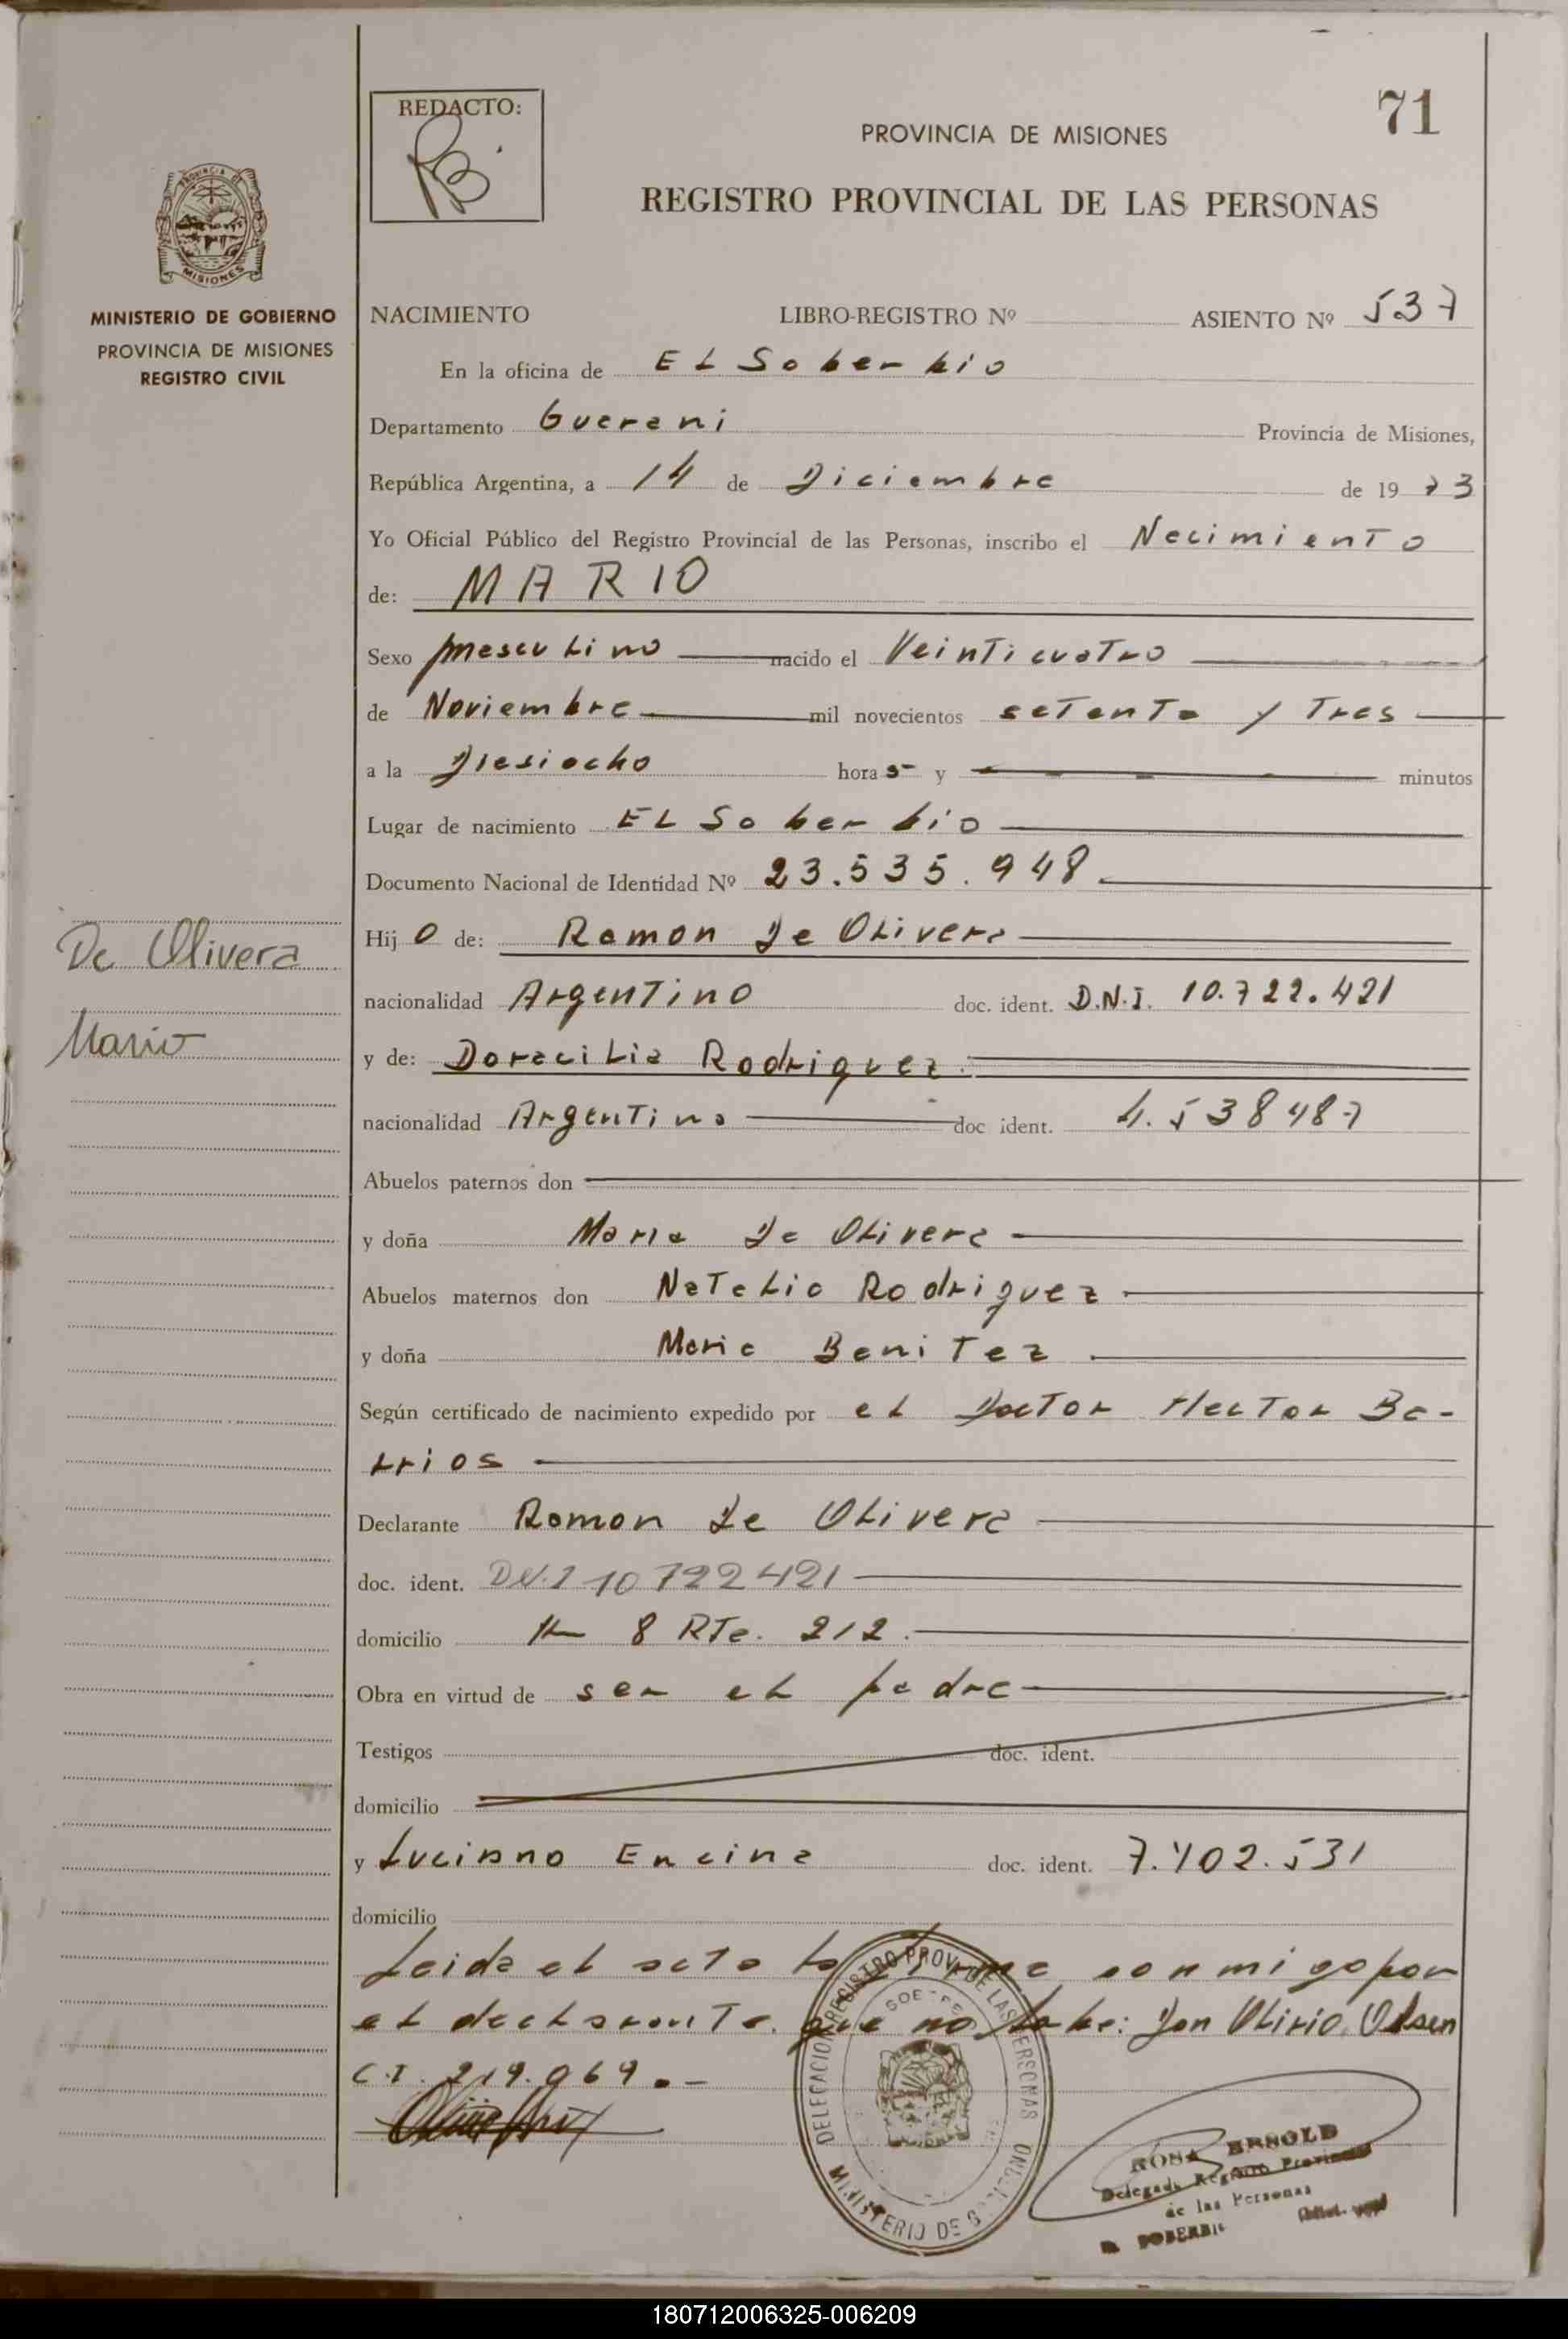 71
REDACTO:
PROVINCIA DE MISIONES
REGISTRO PROVINCIAL DE LAS PERSONAS
PROVINCIA DE
MISIONES
MINISTERIO DE GOBIERNO
PROVINCIA DE MISIONES
REGISTRO CIVIL
NACIMIENTO LIBRO-REGISTRO Nº ASIENTO Nº 537
En la oficina de EL Soberbio
Departamento Guarani Provincia de Misiones,
República Argentina, a 14 de Diciembre de 19 73
Yo Oficial Público del Registro Provincial de las Personas, inscribo el Nacimiento
de: MARIO
Sexo masculino nacido el Veinticuatro
de Noviembre mil novecientos setenta y Tres
a la Diesiocho hora s y minutos
Lugar de nacimiento EL Soberbio
Documento Nacional de Identidad Nº 23.535.948
De Olivera
Mario
Hij o de: Ramon De Olivera
nacionalidad Argentino doc. ident. D.N.I. 10.722.421
y de: Doracilia Rodriguez
nacionalidad Argentina doc ident. 4.538487
Abuelos paternos don
y doña Maria De Olivera
Abuelos maternos don Natalio Rodriguez
y doña Maria Benitez
Según certificado de nacimiento expedido por el Doctor Hector Ba-
rrios
Declarante Ramon de Olivera
doc. ident. DN.I 10 722 421
domicilio Km 8 RTa. 212.
Obra en virtud de ser el padre
Testigos doc. ident.
domicilio
y Luciano Encina doc. ident. 7.402.531
domicilio
Leida el acta la firma conmigo por
el declarante que no sabe: Don Olirio Olsen
C.I. 219.069.-
DELEGACION REGISTRO PROV. DE LAS PERSONAS
MINISTERIO DE
ROSA ERNOLD
Delegada Registro Provincial
de las Personas
SOBERBIO
180712006325-006209